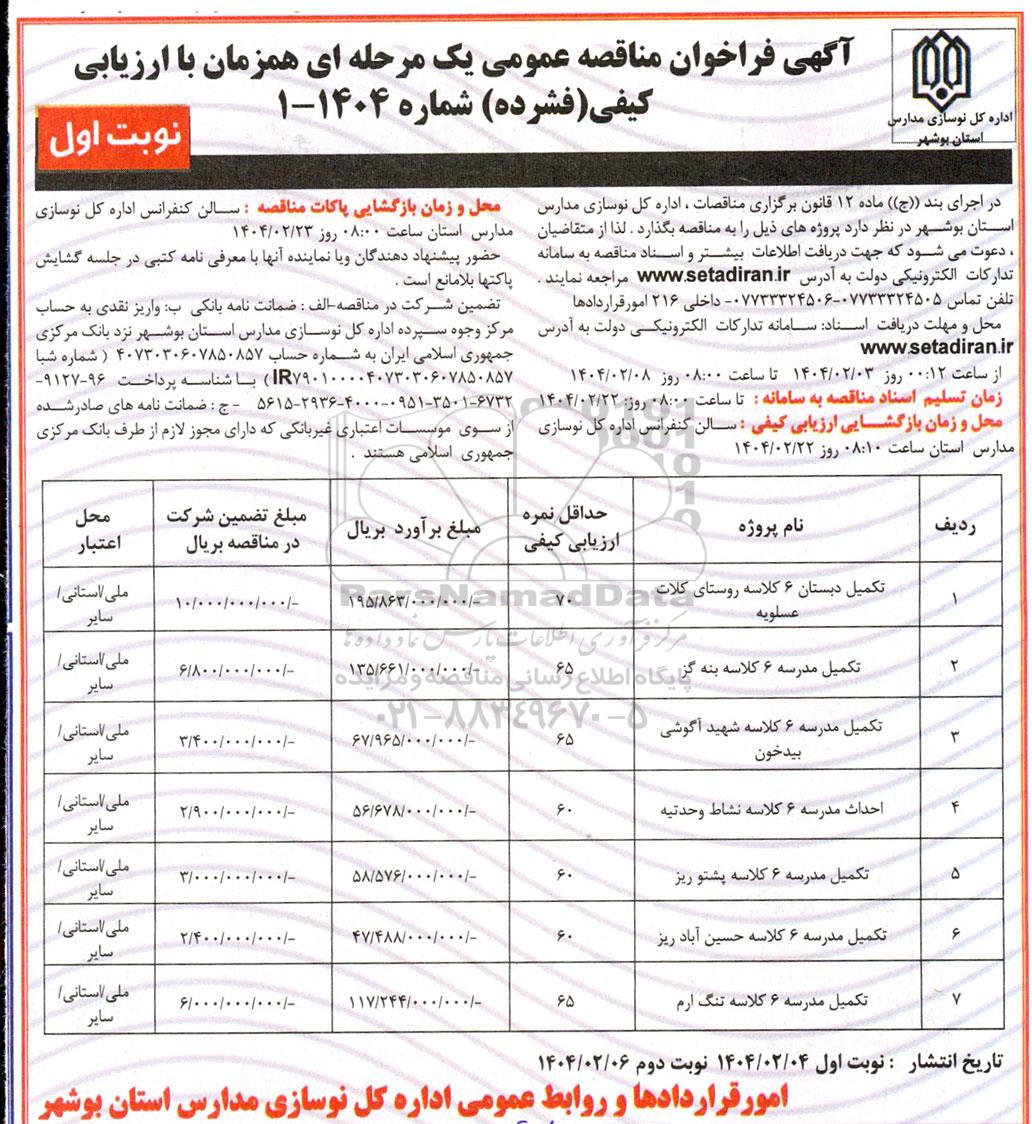 آگهی فراخوان مناقصه عمومی یک مرحله ای همزمان با ارزیابی
کیفی(فشرده) شماره ۱۴۰۴-۱
نوبت اول
اداره کل نوسازی مدارس
استان بوشهر
در اجرای بند ((ج)) ماده ۱۲ قانون برگزاری مناقصات ، اداره کل نوسازی مدارس
استان بوشهر در نظر دارد پروژه های ذیل را به مناقصه بگذارد . لذا از متقاضیان
، دعوت می شود که جهت دریافت اطلاعات بیشتر و اسناد مناقصه به سامانه
تدارکات الکترونیکی دولت به آدرس www.setadiran.ir مراجعه نمایند .
تلفن تماس ۰۷۷۳۳۳۲۴۵۰۵-۰۷۷۳۳۳۲۴۵۰۶- داخلی ۲۱۶ امورقراردادها
محل و مهلت دریافت اسناد: سامانه تدارکات الکترونیکی دولت به آدرس
www.setadiran.ir
از ساعت ۰۰:۱۲ روز ۱۴۰۴/۰۲/۰۳ تا ساعت ۰۸:۰۰ روز ۱۴۰۴/۰۲/۰۸
زمان تسلیم اسناد مناقصه به سامانه : تا ساعت ۰۸:۰۰ روز: ۱۴۰۴/۰۲/۲۲
محل و زمان بازگشایی ارزیابی کیفی : سالن کنفرانس اداره کل نوسازی
مدارس استان ساعت ۰۸:۱۰ روز ۱۴۰۴/۰۲/۲۲
محل و زمان بازگشایی پاکات مناقصه : سالن کنفرانس اداره کل نوسازی
مدارس استان ساعت ۰۸:۰۰ روز ۱۴۰۴/۰۲/۲۳
حضور پیشنهاد دهندگان ویا نماینده آنها با معرفی نامه کتبی در جلسه گشایش
پاکتها بلامانع است .
تضمین شرکت در مناقصه-الف : ضمانت نامه بانکی ب: واریز نقدی به حساب
مرکز وجوه سپرده اداره کل نوسازی مدارس استان بوشهر نزد بانک مرکزی
جمهوری اسلامی ایران به شماره حساب ۴۰۷۳۰۳۰۶۰۷۸۵۰۸۵۷ ( شماره شبا
IR۷۹۰۱۰۰۰۰۴۰۷۳۰۳۰۶۰۷۸۵۰۸۵۷ ) با شناسه پرداخت ۹۶-۹۱۲۷-
۶۷۳۲-۳۵۰۱-۰۹۵۱-۴۰۰۰-۲۹۳۶-۵۶۱۵ - ج : ضمانت نامه های صادرشده
از سوی موسسات اعتباری غیربانکی که دارای مجوز لازم از طرف بانک مرکزی
جمهوری اسلامی هستند .
ردیف نام پروژه حداقل نمره ارزیابی کیفی مبلغ برآورد بریال مبلغ تضمین شرکت در مناقصه بریال محل اعتبار
۱ تکمیل دبستان ۶ کلاسه روستای کلات عسلویه ۷۰ ۱۹۵/۸۶۳/۰۰۰/۰۰۰/- ۱۰/۰۰۰/۰۰۰/۰۰۰/- ملی/استانی/سایر
۲ تکمیل مدرسه ۶ کلاسه بنه گز ۶۵ ۱۳۵/۶۶۱/۰۰۰/۰۰۰/- ۶/۸۰۰/۰۰۰/۰۰۰/- ملی/استانی/سایر
۳ تکمیل مدرسه ۶ کلاسه شهید آگوشی بیدخون ۶۵ ۶۷/۹۶۵/۰۰۰/۰۰۰/- ۳/۴۰۰/۰۰۰/۰۰۰/- ملی/استانی/سایر
۴ احداث مدرسه ۶ کلاسه نشاط وحدتیه ۶۰ ۵۶/۶۷۸/۰۰۰/۰۰۰/- ۲/۹۰۰/۰۰۰/۰۰۰/- ملی/استانی/سایر
۵ تکمیل مدرسه ۶ کلاسه پشتو ریز ۶۰ ۵۸/۵۷۶/۰۰۰/۰۰۰/- ۳/۰۰۰/۰۰۰/۰۰۰/- ملی/استانی/سایر
۶ تکمیل مدرسه ۶ کلاسه حسین آباد ریز ۶۰ ۴۷/۴۸۸/۰۰۰/۰۰۰/- ۲/۴۰۰/۰۰۰/۰۰۰/- ملی/استانی/سایر
۷ تکمیل مدرسه ۶ کلاسه تنگ ارم ۶۵ ۱۱۷/۲۴۴/۰۰۰/۰۰۰/- ۶/۰۰۰/۰۰۰/۰۰۰/- ملی/استانی/سایر
ParsNamadData
مرکز فرآوری اطلاعات پارس نماد داده ها
پایگاه اطلاع رسانی مناقصه و مزایده
۰۲۱-۸۸۳۴۹۶۷۰-۵
تاریخ انتشار : نوبت اول ۱۴۰۴/۰۲/۰۴ نوبت دوم ۱۴۰۴/۰۲/۰۶
امورقراردادها و روابط عمومی اداره کل نوسازی مدارس استان بوشهر